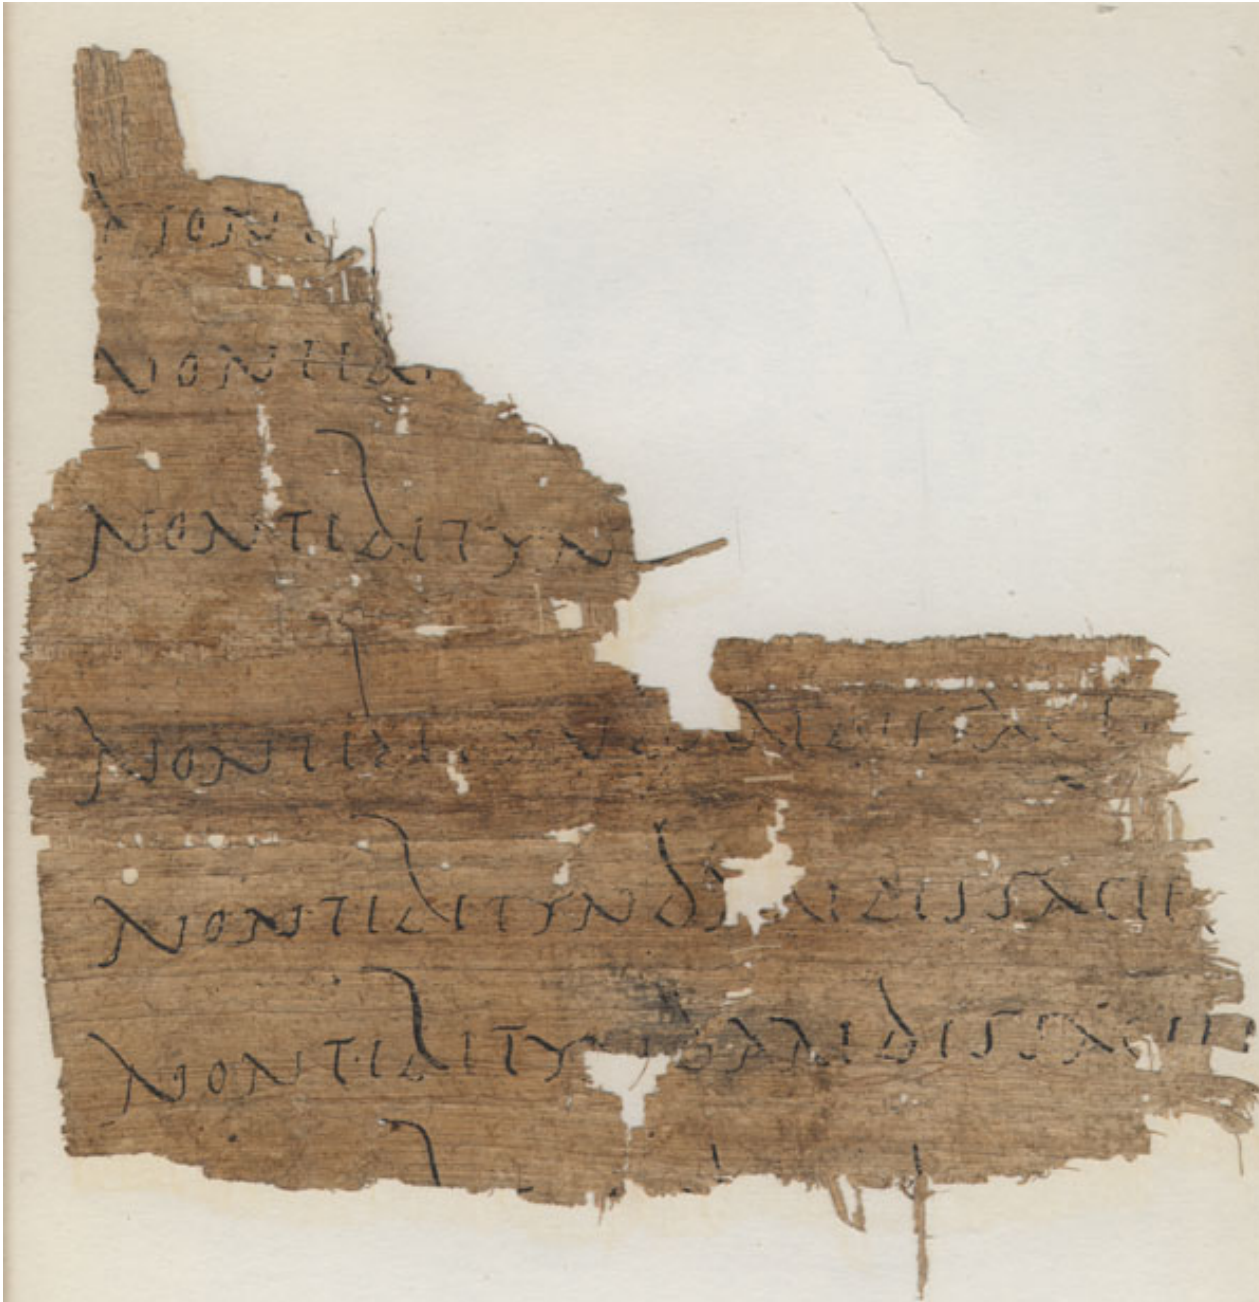 non
non tib
non tibi tyn
non tibi tyndaridis facie
non tibi tyndaridis facie
non tibi tyndaridis facie